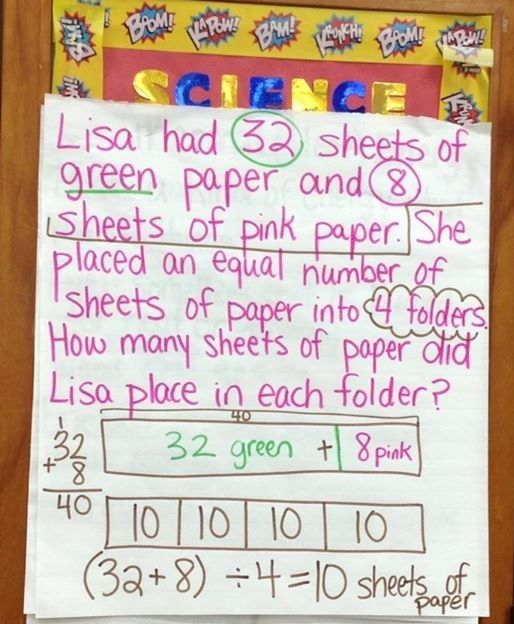 BOOM! KAPOW! BAM! KRUNCH! BOOM! KAPOW!
SCIENCE
Lisa had 32 sheets of
green paper and 8
sheets of pink paper. She
placed an equal number of
sheets of paper into 4 folders.
How many sheets of paper did
Lisa place in each folder?
40
1
32
+ 8
40
32 green + 8 pink
10 10 10 10
(32+8) ÷4=10 sheets of
paper